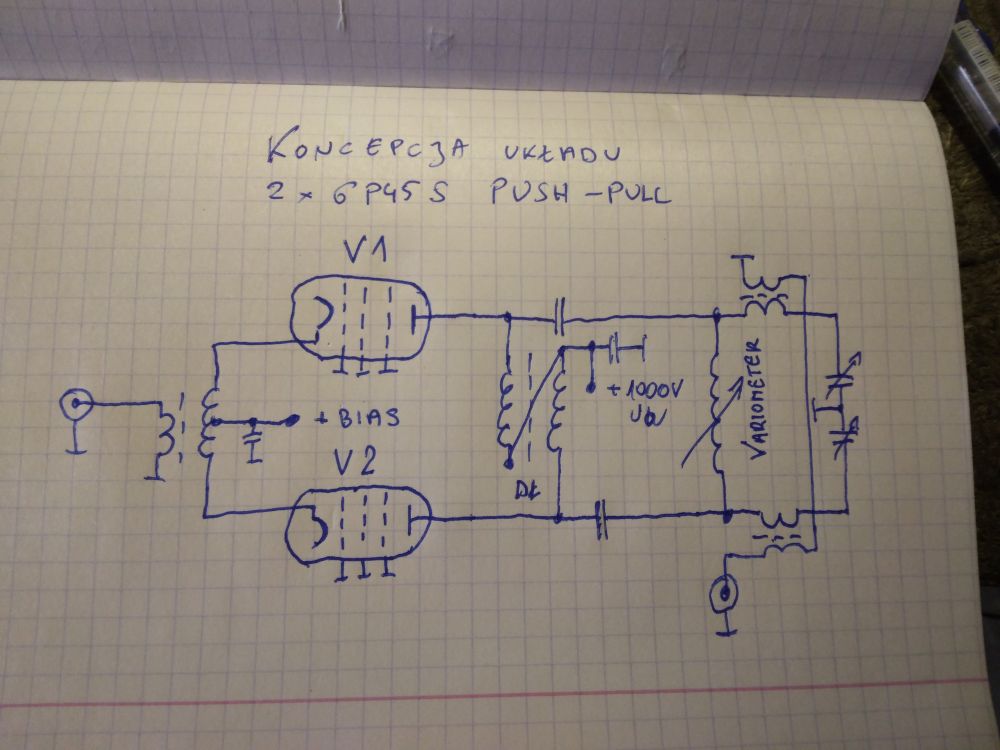 KONCEPCJA UKŁADU
2 x 6P45S PUSH-PULL
V1
+1000V
VARIOMETER
+ BIAS
V2
Dł